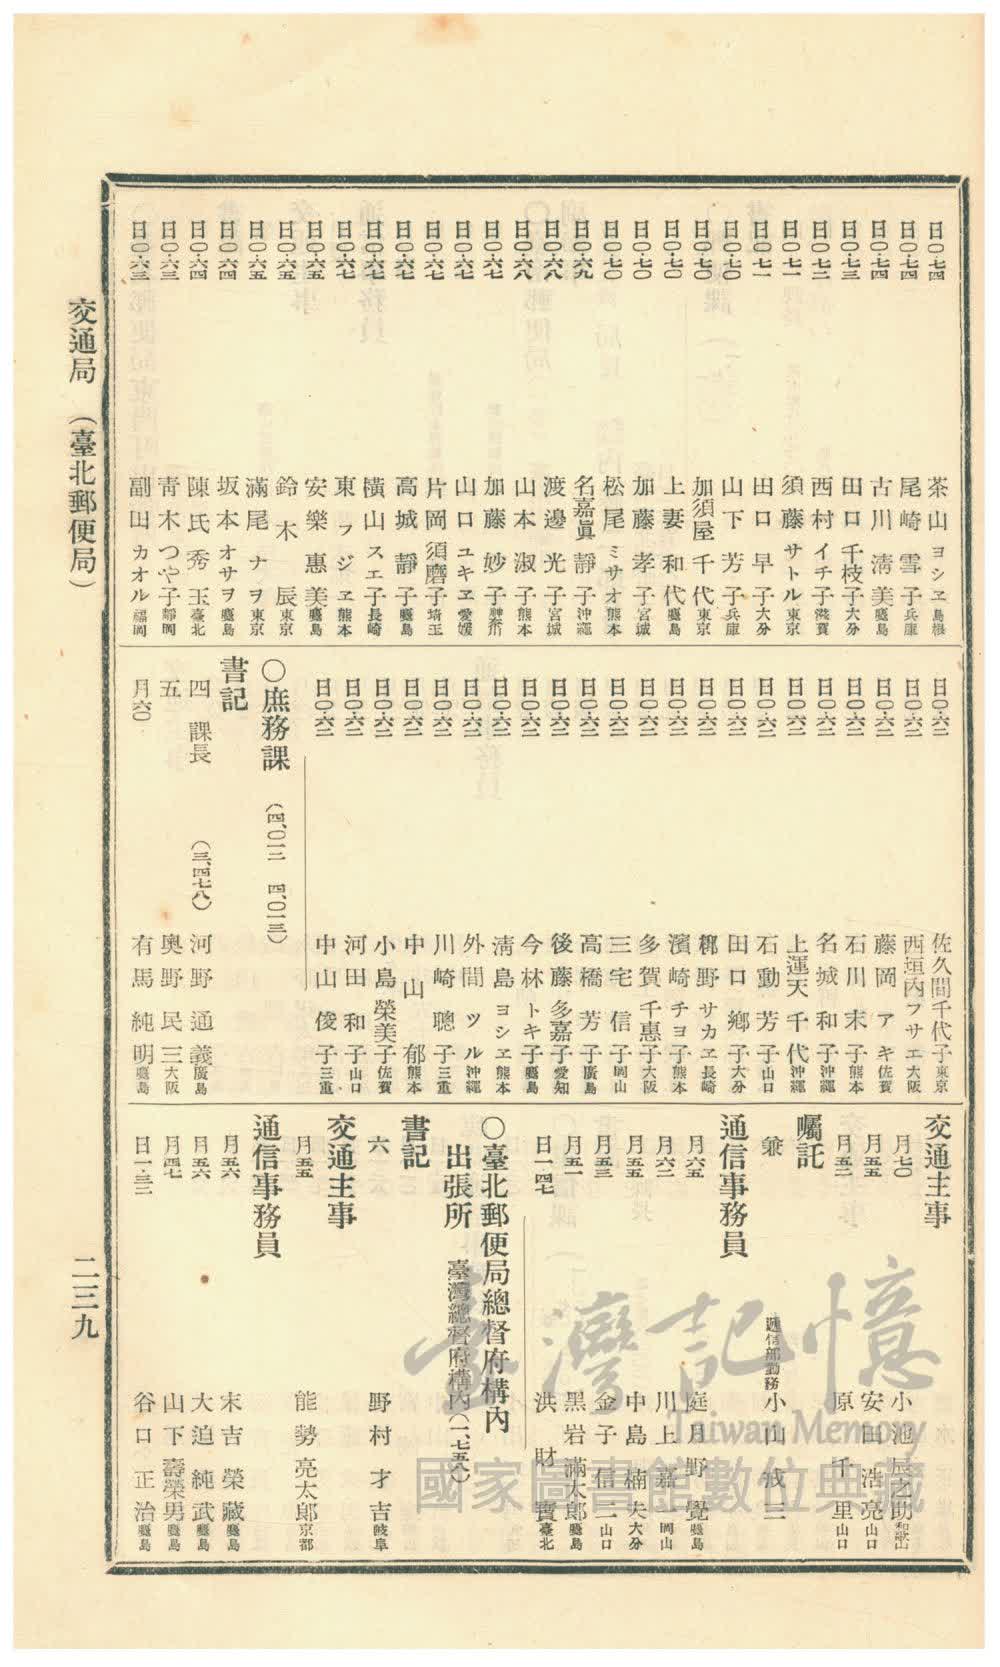 日〇・七四 茶山ヨシヱ 島根
日〇・七四 尾崎雪子 兵庫
日〇・七四 古川淸美 鹿兒島
日〇・七三 田口千枝子 大分
日〇・七二 西村イチ子 滋賀
日〇・七一 須藤サトル 東京
日〇・七一 田口早子 大分
日〇・七〇 山下芳子 兵庫
日〇・七〇 加須屋千代 東京
日〇・七〇 上妻和代 鹿兒島
日〇・七〇 加藤孝子 宮城
日〇・七〇 松尾ミサオ 熊本
日〇・六九 名嘉眞靜子 沖繩
日〇・六八 渡邊光子 宮城
日〇・六八 山本淑子 熊本
日〇・六七 加藤妙子 神奈川
日〇・六七 山口ユキヱ 愛媛
日〇・六七 片岡須磨子 埼玉
日〇・六七 高城靜子 鹿兒島
日〇・六七 橫山スヱ子 長崎
日〇・六七 東フジヱ 熊本
日〇・六五 安樂惠美 鹿兒島
日〇・六五 鈴木辰 東京
日〇・六五 滿尾ナヲ 東京
日〇・六四 坂本オサヲ 鹿兒島
日〇・六四 陳氏秀玉 臺北
日〇・六三 靑木つや子 靜岡
日〇・六三 副田カオル 福岡
日〇・六二 佐久間千代子 東京
日〇・六二 西垣內フサヱ 大阪
日〇・六二 藤岡アキ 佐賀
日〇・六二 石川末子 熊本
日〇・六二 名城和子 沖繩
日〇・六二 上運天千代 沖繩
日〇・六二 石動芳子 山口
日〇・六二 田口鄕子 大分
日〇・六二 野サカヱ 長崎
日〇・六二 濱崎チヨ子 熊本
日〇・六二 多賀千惠子 大阪
日〇・六二 三宅信子 岡山
日〇・六二 高橋芳子 廣島
日〇・六二 後藤多嘉子 愛知
日〇・六二 今林トキ子 鹿兒島
日〇・六二 淸島ヨシヱ 熊本
日〇・六二 外間ツル 沖繩
日〇・六二 川崎聰子 三重
日〇・六二 中山郁 熊本
日〇・六二 小島榮美子 佐賀
日〇・六二 河田和子 山口
日〇・六二 中山俊子 三重
〇庶務課 (四、〇一二 四、〇一三)
書記
四 課長 (三、四七八) 河野通義 廣島
五 奧野民三 大阪
月六〇 有馬純明 鹿兒島
交通主事
月七〇 小池辰之助 和歌山
月五五 安田浩亮 山口
月五二 原千里 山口
囑託
兼 遞信部勤務 小山成三
通信事務員
月六五 庭月野覺 鹿兒島
月六二 川上嘉一 岡山
月五五 中島楠夫 大分
月五三 金子信二 山口
月五一 黑岩滿太郎 鹿兒島
日一・四七 洪財寶 臺北
〇臺北郵便局總督府構內
出張所 臺灣總督府構內(一、七五八)
書記
六 野村才吉 岐阜
交通主事
月五五 能勢亮太郎 京都
通信事務員
月五六 末吉榮藏 鹿兒島
月五六 大迫純武 鹿兒島
月四七 山下壽榮男 鹿兒島
日一・三二 谷口正治 鹿兒島
交通局 (臺北郵便局)
二三九
臺灣記憶
Taiwan Memory
國家圖書館數位典藏